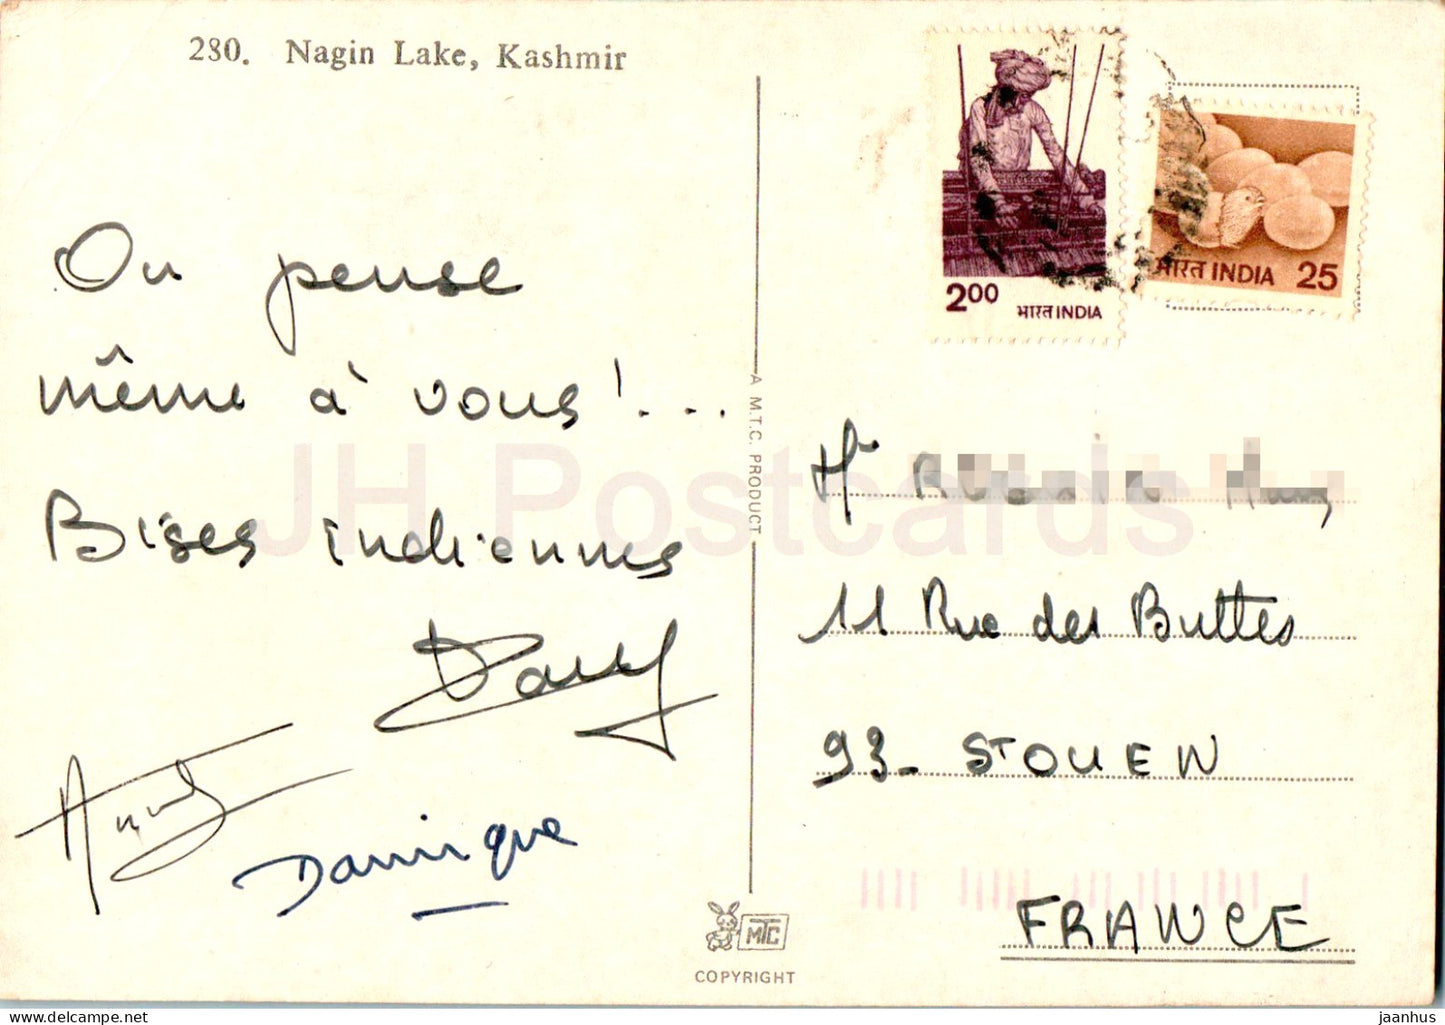 280. Nagin Lake, Kashmir
On pense
même à vous!...
Bises indiennes
Dany
Dominique
2.00
भारत INDIA
भारत INDIA 25
A M.T.C. PRODUCT
11 Rue des Buttes
93- ST OUEN
FRANCE
MTC
COPYRIGHT
JH Postcards
jaanhus